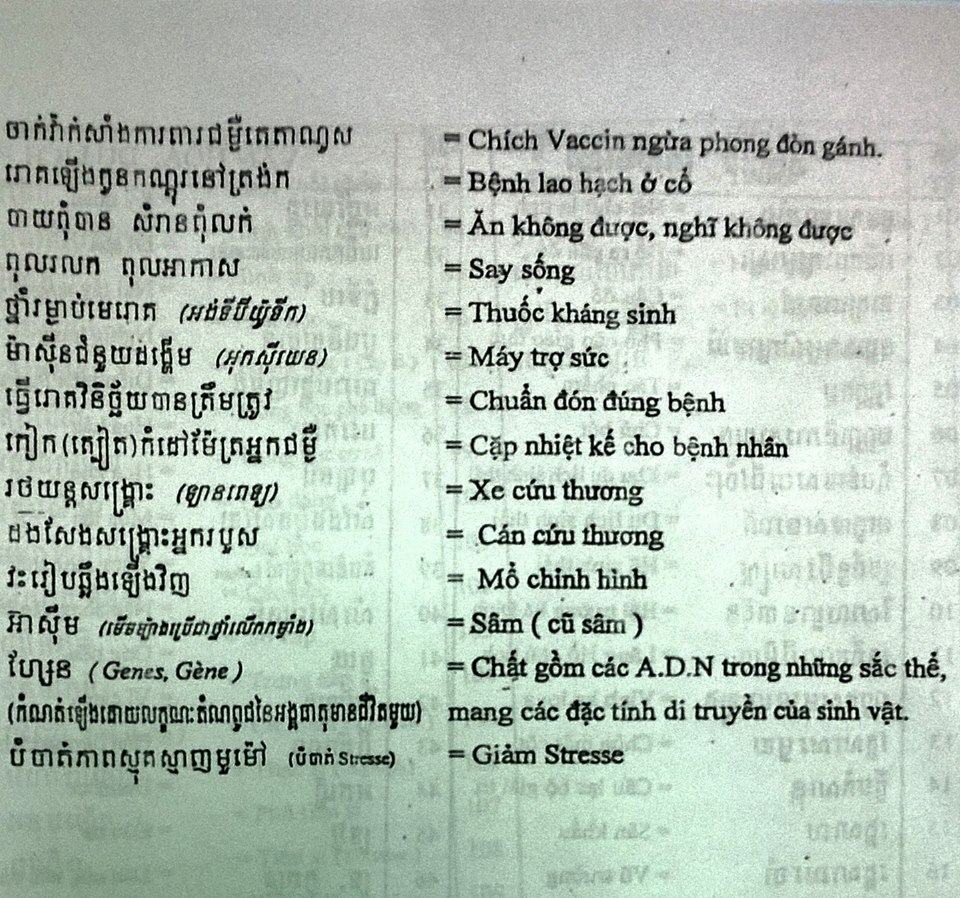 ចាក់វ៉ាក់សាំងការពារជម្ងឺតេតាណូស = Chích Vaccin ngừa phong đòn gánh.
រោគឡើងកូនកណ្តុរនៅត្រង់ក = Bệnh lao hạch ở cổ
បាយពុំបាន សំរានពុំលក់ = Ăn không được, nghĩ không được
ពុលរលក ពុលអាកាស = Say sống
ថ្នាំរម្ងាប់មេរោគ (អង់ទីប៊ីយ៉ូទឹក) = Thuốc kháng sinh
ម៉ាស៊ីនជំនួយដង្ហើម (អុកស៊ីសែន) = Máy trợ sức
ធ្វើរោគវិនិច្ឆ័យបានត្រឹមត្រូវ = Chuẩn đón đúng bệnh
កៀក(ស្បៀត)កំដៅម៉ែត្រអ្នកជម្ងឺ = Cặp nhiệt kế cho bệnh nhân
រថយន្តសង្គ្រោះ (ឡានពេទ្យ) = Xe cứu thương
ដងសែងសង្គ្រោះអ្នករបួស = Cán cứu thương
វះរៀបឆ្អឹងឡើងវិញ = Mổ chỉnh hình
អ៊ាស៊ឹម (មើមម្យ៉ាងប្រើជាថ្នាំលើកកម្លាំង) = Sâm ( cũ sâm )
ហ្សែន ( Genes, Gène ) = Chất gồm các A.D.N trong những sắc thể,
(កំណត់ឡើងដោយលក្ខណៈតំណពូជនៃអង្គធាតុមានជីវិតមួយ) mang các đặc tính di truyền của sinh vật.
បំបាត់ភាពស្មុគស្មាញមួម៉ៅ (បំបាត់ Stresse) = Giảm Stresse